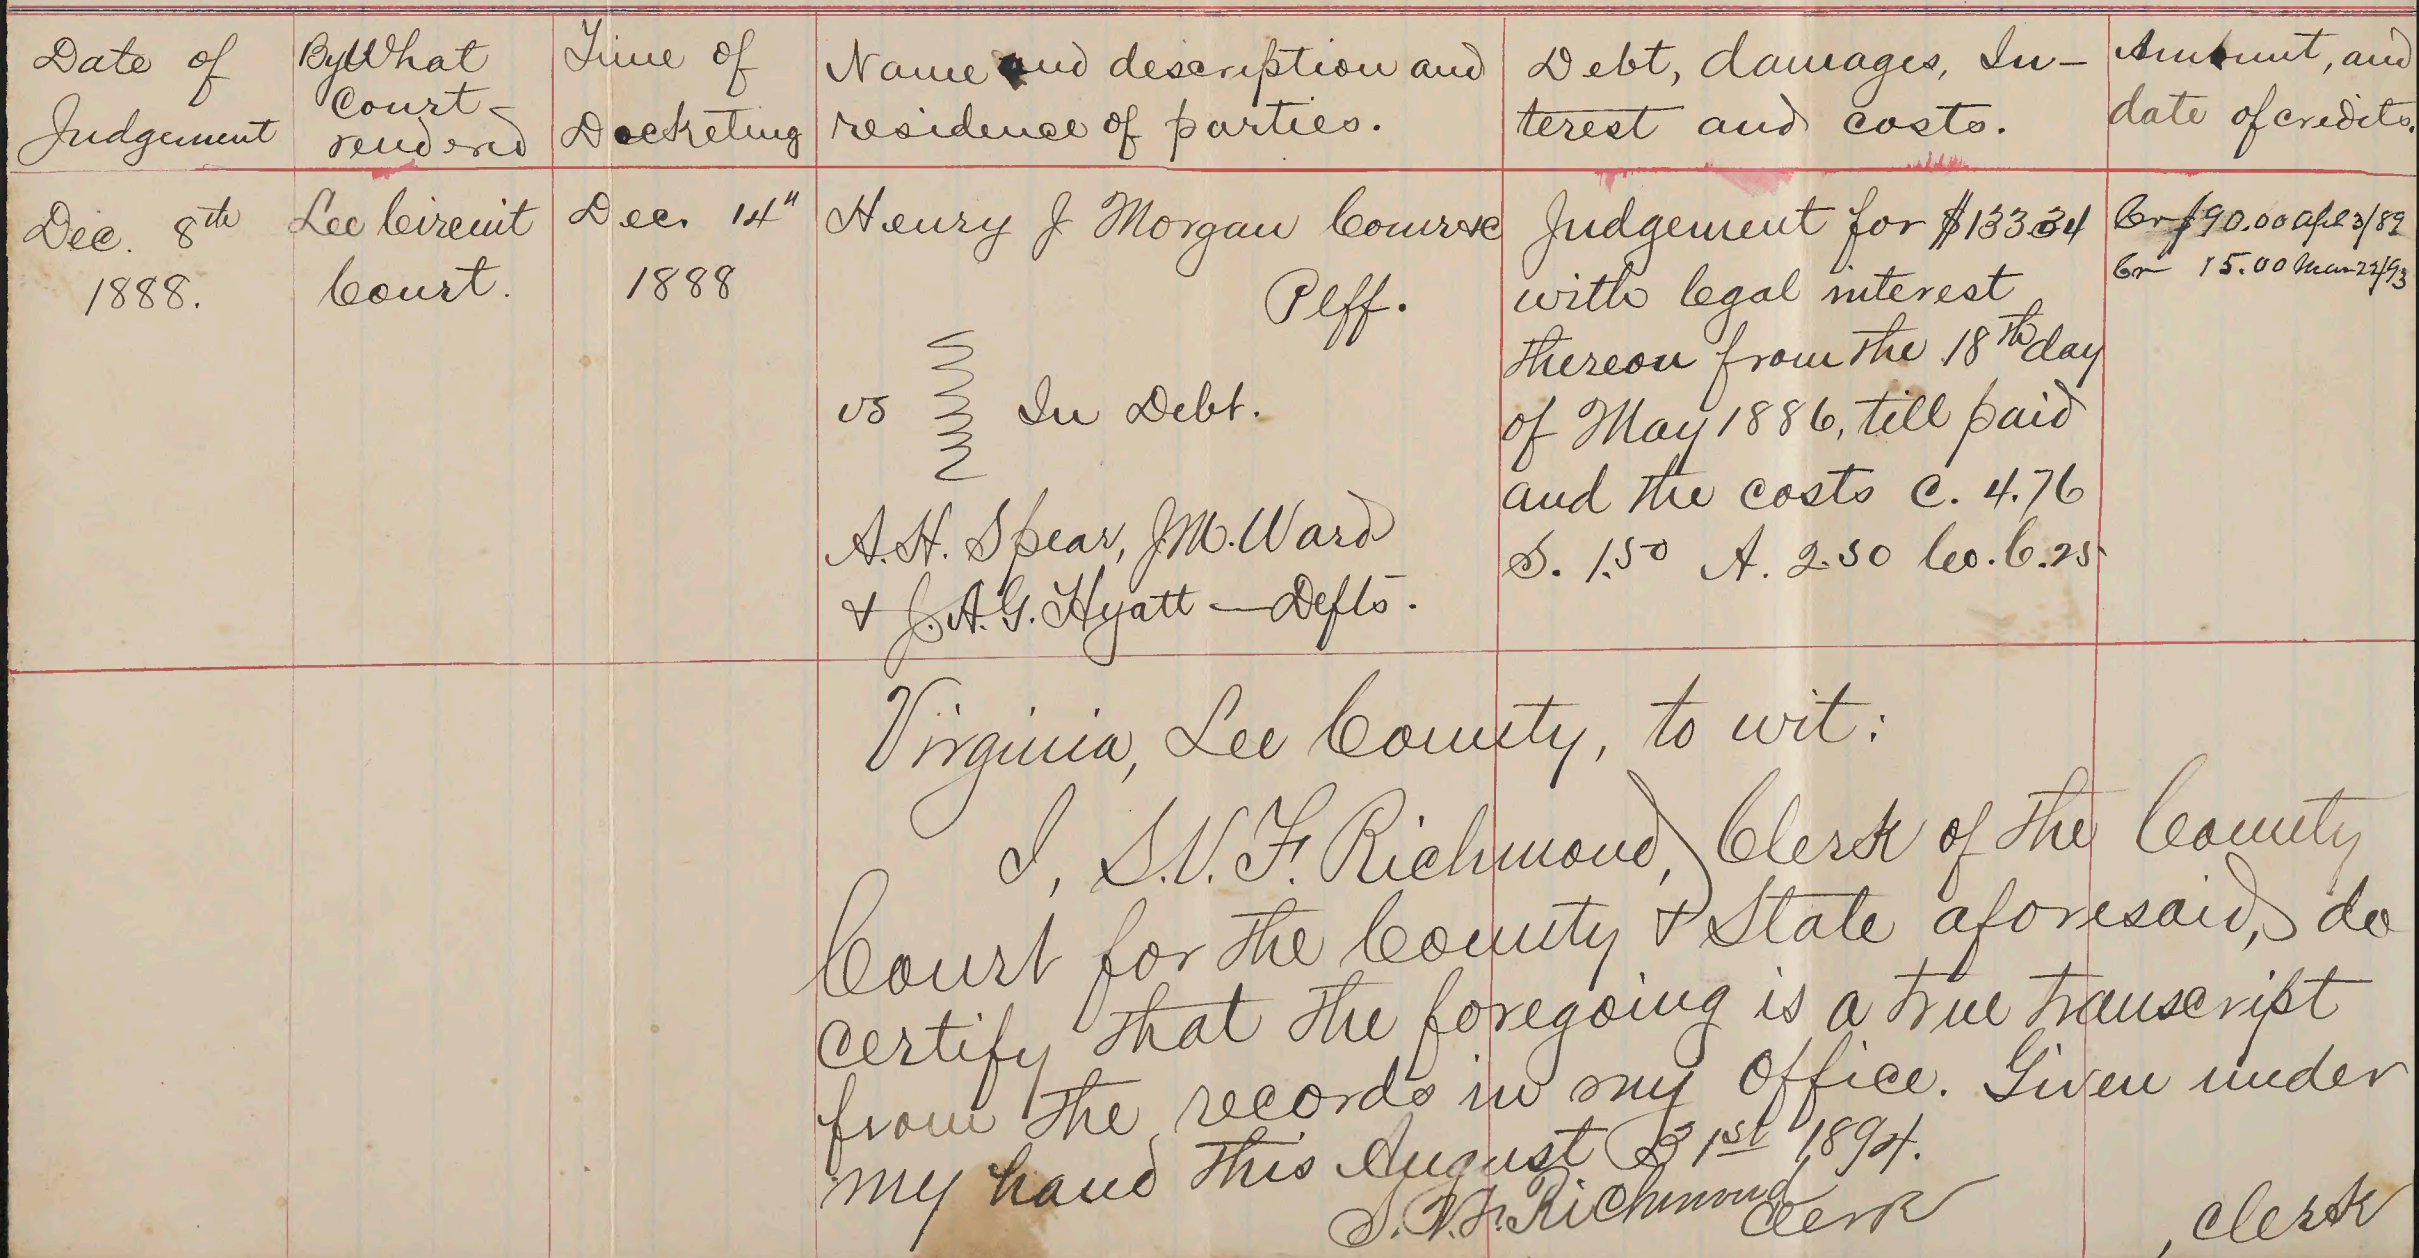 Date of
Judgement
By What
Court
rendered
Time of
Docketing
Name and description and
residence of parties.
Debt, damages, In-
terest and costs.
Amount, and
date of credits.
Dec. 8th
1888.
Lee Circuit
Court.
Dec. 14"
1888
Henry J Morgan Comr &c
Plff.
vs In Debt.
A.H. Spear, J.M. Ward
& J.A.G. Hyatt — Defts.
Judgement for $133.34
with legal interest
thereon from the 18th day
of May 1886, till paid
and the costs C. 4.76
S. 1.50 A. 2.50 Co. C. 25
Cr $90.00 Apl 3/89
Cr 15.00 Mar 22/93
Virginia, Lee County, to wit:
I, S.V.F. Richmond, Clerk of the County
Court for the County & State aforesaid, do
certify that the foregoing is a true transcript
from the records in my office. Given under
my hand this August 31st 1894.
S.V.F. Richmond Clerk
, Clerk